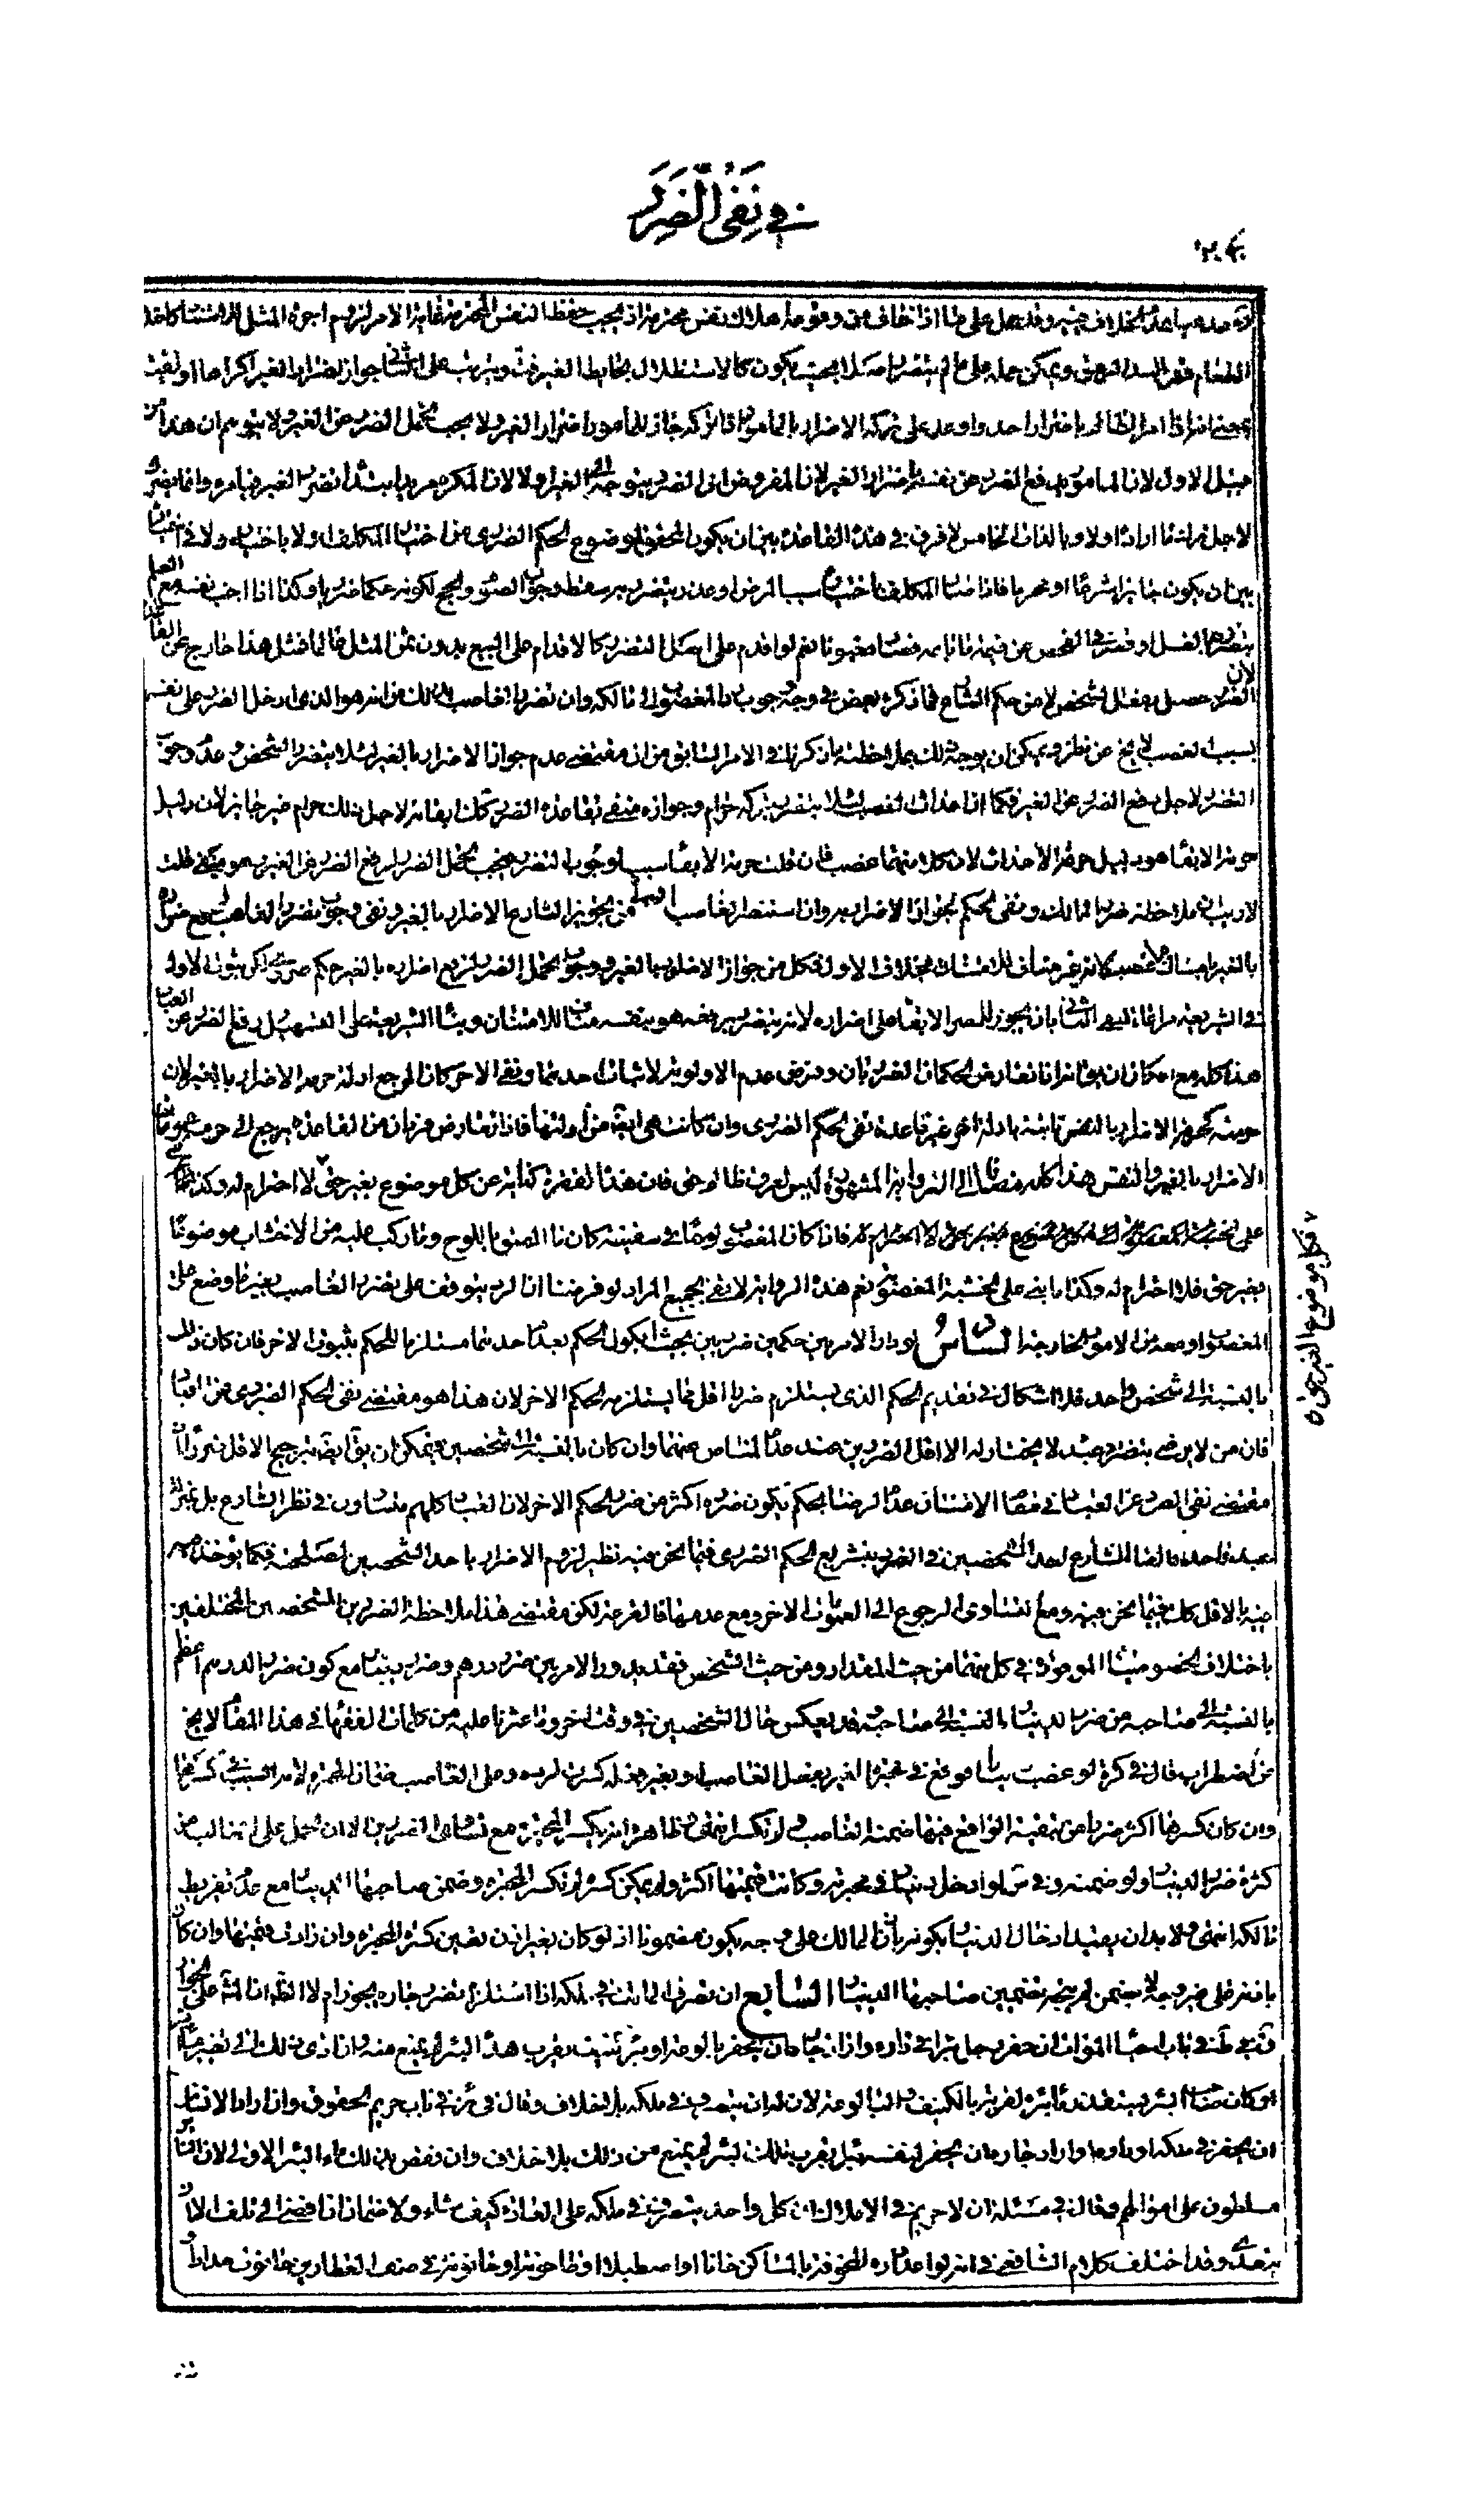 في نفي الضرر
قوة عدم الخلاف فيه وقد حمل على ما اذا خاف من وقوعه هلاك نفس محترمة اذ يجب حفظ النفس المحترمة غاية الامر لزوم اجرة المثل
الطعام ويمكن حمله على ما لم يتضرر اصلا بحيث يكون كالاستظلال بحايط الغير فت ويترتب على الثاني جواز اضرار الغير اكراها او تقية
بمعنى انه اذا امر الظالم باضرار احد واوعد على تركه الاضرار بالمأمور اذا تركه جاز للمأمور اضرار الغير ولا يجب تحمل الضرر عن الغير ولا يتوهم ان هذا من
قبيل الاول لان المأمور يدفع الضرر عن نفسه باضرار الغير لان المفروض ان الضرر يتوجه الى الغير اولا لان المكره مريد ابتداء تضرر الغير فيأمره وانما يضره
لاجل ترك ما اراده اولا وبالذات الخامس لا فرق في هذه القاعدة بين ان يكون المحقق لموضوع الحكم الضرري من اختيار المكلف او لا باختياره ولا في اختياره
بين ان يكون جايزا شرعا او محرما فاذا صار المكلف باختياره سببا لمرض او عدو يتضرر به سقط وجوب الصوم والحج لكونه حكما ضرريا وكذا اذا اجنب نفسه مع العلم
بتضرره بالغسل او قصر في الفحص عن قيمة ما باعه فصار مغبونا نعم لو اقدم على اصل التضرر كالاقدام على البيع بدون ثمن المثل عالما فمثل هذا خارج عن القاعدة
لان الضرر حصل بفعل الشخص لا من حكم الشارع فما ذكره بعض في وجه وجوب رد المغصوب الى مالكه وان تضرر الغاصب بذلك من انه هو الذي ادخل الضرر على نفسه
بسبب الغصب لا يخ عن نظر ويمكن ان يوجه ذلك بملاحظة ما ذكرناه في الامر السابق من ان مقتضى عدم جواز الاضرار بالغير لئلا يتضرر الشخص وعدم وجوب
التضرر لاجل دفع الضرر عن الغير فكما ان احداث الغصب لئلا يتضرر بتركه حرام وجوازه منفي بقاعدة الضرر كك ابقائه لاجل ذلك حرام غير جايز لان دليل
حرمة الابقاء هو دليل حرمة الاحداث لان كلا منهما غصب فان قلت حرمة الابقاء سبب لوجوب التضرر فيجب تحمل الضرر لدفع الضرر عن الغير وهو منفي قلت
لا ريب ان ملاحظة ضرر المالك ونفى الحكم بجواز الاضرار به وان استضر الغاصب اولى من تجويز الشارع الاضرار بالغير ونفى وجوب تضرر الغاصب لدفع ضرره
بالغير بامساك المغصب كانه غير مناف للامتنان بخلاف الاول فكل من جواز الاضرار بالغير ووجوب تحمل الضرر لرفع اضراره بالغير حكم ضرري لكن ثبوت الاول
في الشريعة مراغما الثاني بان يجوز للمضر الابقاء على اضراره لانه يتضرر برفعه هو بنفسه مناف للامتنان وبناء الشريعة على التسهيل ورفع الضرر عن العباد
هذا كله مع امكان ان يق انه اذا تعارض الحكمان الضرريان وفرض عدم الاولوية لاثبات احدهما ونفى الاخر كان المرجع ادلة حرمة الاضرار بالغير لان
حرمته كحرمة الاضرار بالنفس ثابتة بادلة اخر غير قاعدة نفى الحكم الضرري وان كانت هي ايضا من ادلتها فاذا تعارض فردان من القاعدة يرجع الى حرمة عموم
الاضرار بالغير والنفس هذا كله مضافا الى الرواية المشهورة ليس لعرق ظالم حق فان هذه الفقرة كناية عن كل موضوع بغير حق لا احترام له وكذا
على الخشبة فاذا كان المغصوب لوحا في سفينة كان ما الصق باللوح وما ركب عليه من الاخشاب موضوعا
بغير حق فلا احترام له وكذا ما بنى على الخشبة المغصوبة نعم هذه الرواية لا تفى بجميع المراد لو فرضنا ان الرد يتوقف على تضرر الغاصب بغير ما وضع على
المغصوب او معه من الامور الخارجة السادس لو دار الامر بين حكمين ضرريين بحيث يكون الحكم بعدم احدهما مستلزما للحكم بثبوت الاخر فان كان ذلك
بالنسبة الى شخص واحد فلا اشكال في تقديم الحكم الذي يستلزم ضررا اقل مما يستلزمه الحكم الاخر لان هذا هو مقتضى نفى الحكم الضرري عن العباد
فان من لا يرضى بتضرر عبده لا يختار له الا اقل الضررين عند عدم المناص عنهما وان كان بالنسبة الى شخصين فيمكن ان يق ايضا بترجيح الاقل ضررا اذ
مقتضى نفى الضرر عن العباد في مقام الامتنان عدم الرضا بحكم يكون ضرره اكثر من ضرر الحكم الاخر لان العباد كلهم متساوون في نظر الشارع بل بمنزلة
عبد واحد فالقاء الشارع احد الشخصين في الضرر بتشريع الحكم الضرري فيما نحن فيه نظير لزوم الاضرار باحد الشخصين لمصلحته فكما يؤخذ
فيه بالاقل كك فيما نحن فيه ومع التساوي الرجوع الى العمومات الاخر ومع عدمها فالقرعة لكن مقتضى هذا ملاحظة الضررين الشخصيين المختلفين
باختلاف الخصوصيات الموجودة في كل منهما من حيث المقدار ومن حيث الشخص فقد يدور الامر بين ضرر درهم وضرر دينار مع كون ضرر الدرهم اعظم
بالنسبة الى صاحبه من ضرر الدينار بالنسبة الى صاحبه وقد يعكس حال الشخصين في وقت اخر وما عثرنا عليه من كلمات الفقهاء في هذا المقام لا يخ
عن اضطراب قال في كره لو غصب دينارا فوقع في محبرة الغير بفعل الغاصب او بغير فعله كسرت لرده وعلى الغاصب ضمان المحبرة لانه السبب في كسرها
وان كان كسرها اكثر ضررا من تبقية الواقع فيها ضمنه الغاصب ولم تكسر انتهى وظاهره انه يكسر المحبرة مع تساوى الضررين الا ان يحمل على الغالب من
كثرة ضرر الدينار ولو ضمنه وفي س لو ادخل دينارا في محبرته وكانت قيمتها اكثر ولم يمكن كسره لم تكسر المحبرة وضمن صاحبها الدينار مع عدم تفريط
مالكه انتهى ولا بد ان يقيد ادخال الدينار بكونه باذن المالك على وجه يكون مضمونا اذ لو كان بغير اذن تعين كسر المحبرة وان زادت قيمتها وان كان
باذنه على غير وجه لا يضمن لم يتجه تضمين صاحبها الدينار السابع ان تصرف المالك في ملكه اذا استلزم تضرر جاره يجوز ام لا الظ ان المش على الجواز
في ط في باب احياء الموات ان حفر رجل بئرا في داره واراد جاره ان يحفر بالوعة او بئر كنيف بقرب هذه البئر لم يمنع منه وان ادى ذلك الى تغير ماء
او كان صاحب البئر يستقذر ماء بئره لقربه بالكنيف والبالوعة لان له ان يتصرف في ملكه بلا خلاف وقال في ئر في باب حريم الحقوق وان اراد الانسان
ان يحفر في ملكه او داره واراد جاره ان يحفر لنفسه بئرا بقرب تلك البئر لم يمنع من ذلك بلا خلاف وان نقص بذلك ماء البئر الاولى لان الناس
مسلطون على اموالهم وقال في مسئلة ان لا حريم في الاملاك ان كل واحد يتصرف في ملكه على العادة كيف شاء ولا ضمان اذا افضى الى تلف الا ان
يتعدى وقد اختلف كلام الشافعي في انه لو اعد داره المحفوفة بالمساكن خانا او اصطبلا او طاحونة او حانوته في صف العطارين حانوت حداد